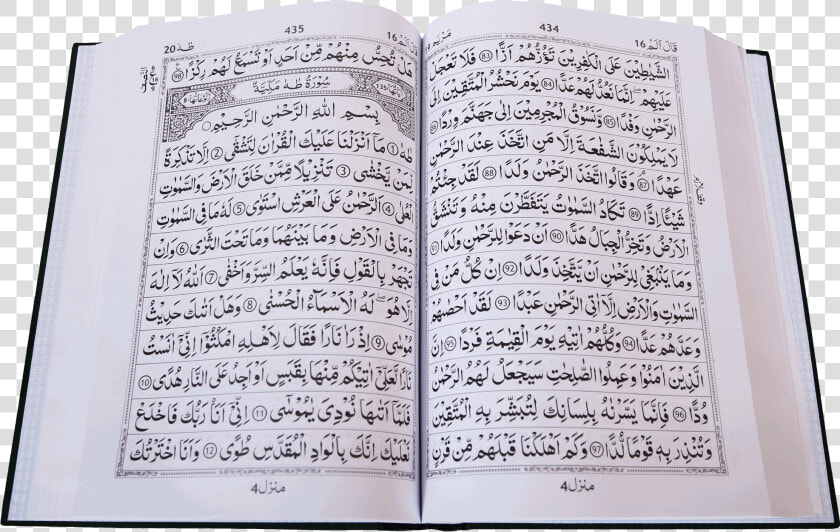 قَالَ اَلَمْ 16
434
مَرْيَم
الشَّيٰطِيْنَ عَلَى الْكٰفِرِيْنَ تَؤُزُّهُمْ اَزًّا ﴿83﴾ فَلَا تَعْجَلْ
عَلَيْهِمْ ؕ اِنَّمَا نَعُدُّ لَهُمْ عَدًّا ﴿84﴾ يَوْمَ نَحْشُرُ الْمُتَّقِيْنَ اِلَى
الرَّحْمٰنِ وَفْدًا ﴿85﴾ وَّنَسُوْقُ الْمُجْرِمِيْنَ اِلٰى جَهَنَّمَ وِرْدًا ﴿86﴾
لَا يَمْلِكُوْنَ الشَّفٰعَةَ اِلَّا مَنِ اتَّخَذَ عِنْدَ الرَّحْمٰنِ
عَهْدًا ﴿87﴾ وَقَالُوا اتَّخَذَ الرَّحْمٰنُ وَلَدًا ﴿88﴾ لَقَدْ جِئْتُمْ
شَيْـًٔا اِدًّا ﴿89﴾ تَكَادُ السَّمٰوٰتُ يَتَفَطَّرْنَ مِنْهُ وَتَنْشَقُّ
الْاَرْضُ وَتَخِرُّ الْجِبَالُ هَدًّا ﴿90﴾ اَنْ دَعَوْا لِلرَّحْمٰنِ وَلَدًا ﴿91﴾
وَمَا يَنْۢبَغِيْ لِلرَّحْمٰنِ اَنْ يَّتَّخِذَ وَلَدًا ﴿92﴾ اِنْ كُلُّ مَنْ فِي
السَّمٰوٰتِ وَالْاَرْضِ اِلَّاۤ اٰتِي الرَّحْمٰنِ عَبْدًا ﴿93﴾ لَقَدْ اَحْصٰىهُمْ
وَعَدَّهُمْ عَدًّا ﴿94﴾ وَكُلُّهُمْ اٰتِيْهِ يَوْمَ الْقِيٰمَةِ فَرْدًا ﴿95﴾ اِنَّ
الَّذِيْنَ اٰمَنُوْا وَعَمِلُوا الصّٰلِحٰتِ سَيَجْعَلُ لَهُمُ الرَّحْمٰنُ
وُدًّا ﴿96﴾ فَاِنَّمَا يَسَّرْنٰهُ بِلِسَانِكَ لِتُبَشِّرَ بِهِ الْمُتَّقِيْنَ
وَتُنْذِرَ بِهٖ قَوْمًا لُّدًّا ﴿97﴾ وَكَمْ اَهْلَكْنَا قَبْلَهُمْ مِّنْ قَرْنٍ
منزل 4
قَالَ اَلَمْ 16
435
طٰهٰ 20
هَلْ تُحِسُّ مِنْهُمْ مِّنْ اَحَدٍ اَوْ تَسْمَعُ لَهُمْ رِكْزًا ﴿98﴾
اٰيَاتُهَا 135
سُوْرَةُ طٰهٰ مَكِّيَّةٌ
رُكُوْعَاتُهَا 8
بِسْمِ اللّٰهِ الرَّحْمٰنِ الرَّحِيْمِ
طٰهٰ ﴿1﴾ مَاۤ اَنْزَلْنَا عَلَيْكَ الْقُرْاٰنَ لِتَشْقٰۤى ﴿2﴾ اِلَّا تَذْكِرَةً
لِّمَنْ يَّخْشٰى ﴿3﴾ تَنْزِيْلًا مِّمَّنْ خَلَقَ الْاَرْضَ وَالسَّمٰوٰتِ
الْعُلٰى ﴿4﴾ اَلرَّحْمٰنُ عَلَى الْعَرْشِ اسْتَوٰى ﴿5﴾ لَهٗ مَا فِي السَّمٰوٰتِ
وَمَا فِي الْاَرْضِ وَمَا بَيْنَهُمَا وَمَا تَحْتَ الثَّرٰى ﴿6﴾ وَاِنْ
تَجْهَرْ بِالْقَوْلِ فَاِنَّهٗ يَعْلَمُ السِّرَّ وَاَخْفٰى ﴿7﴾ اَللّٰهُ لَاۤ اِلٰهَ
اِلَّا هُوَ ؕ لَهُ الْاَسْمَآءُ الْحُسْنٰى ﴿8﴾ وَهَلْ اَتٰىكَ حَدِيْثُ
مُوْسٰى ﴿9﴾ اِذْ رَاٰ نَارًا فَقَالَ لِاَهْلِهِ امْكُثُوْۤا اِنِّيْۤ اٰنَسْتُ
نَارًا لَّعَلِّيْۤ اٰتِيْكُمْ مِّنْهَا بِقَبَسٍ اَوْ اَجِدُ عَلَى النَّارِ هُدًى ﴿10﴾
فَلَمَّاۤ اَتٰىهَا نُوْدِيَ يٰمُوْسٰى ﴿11﴾ اِنِّيْۤ اَنَا رَبُّكَ فَاخْلَعْ
نَعْلَيْكَ ۚ اِنَّكَ بِالْوَادِ الْمُقَدَّسِ طُوًى ﴿12﴾ وَاَنَا اخْتَرْتُكَ
منزل 4